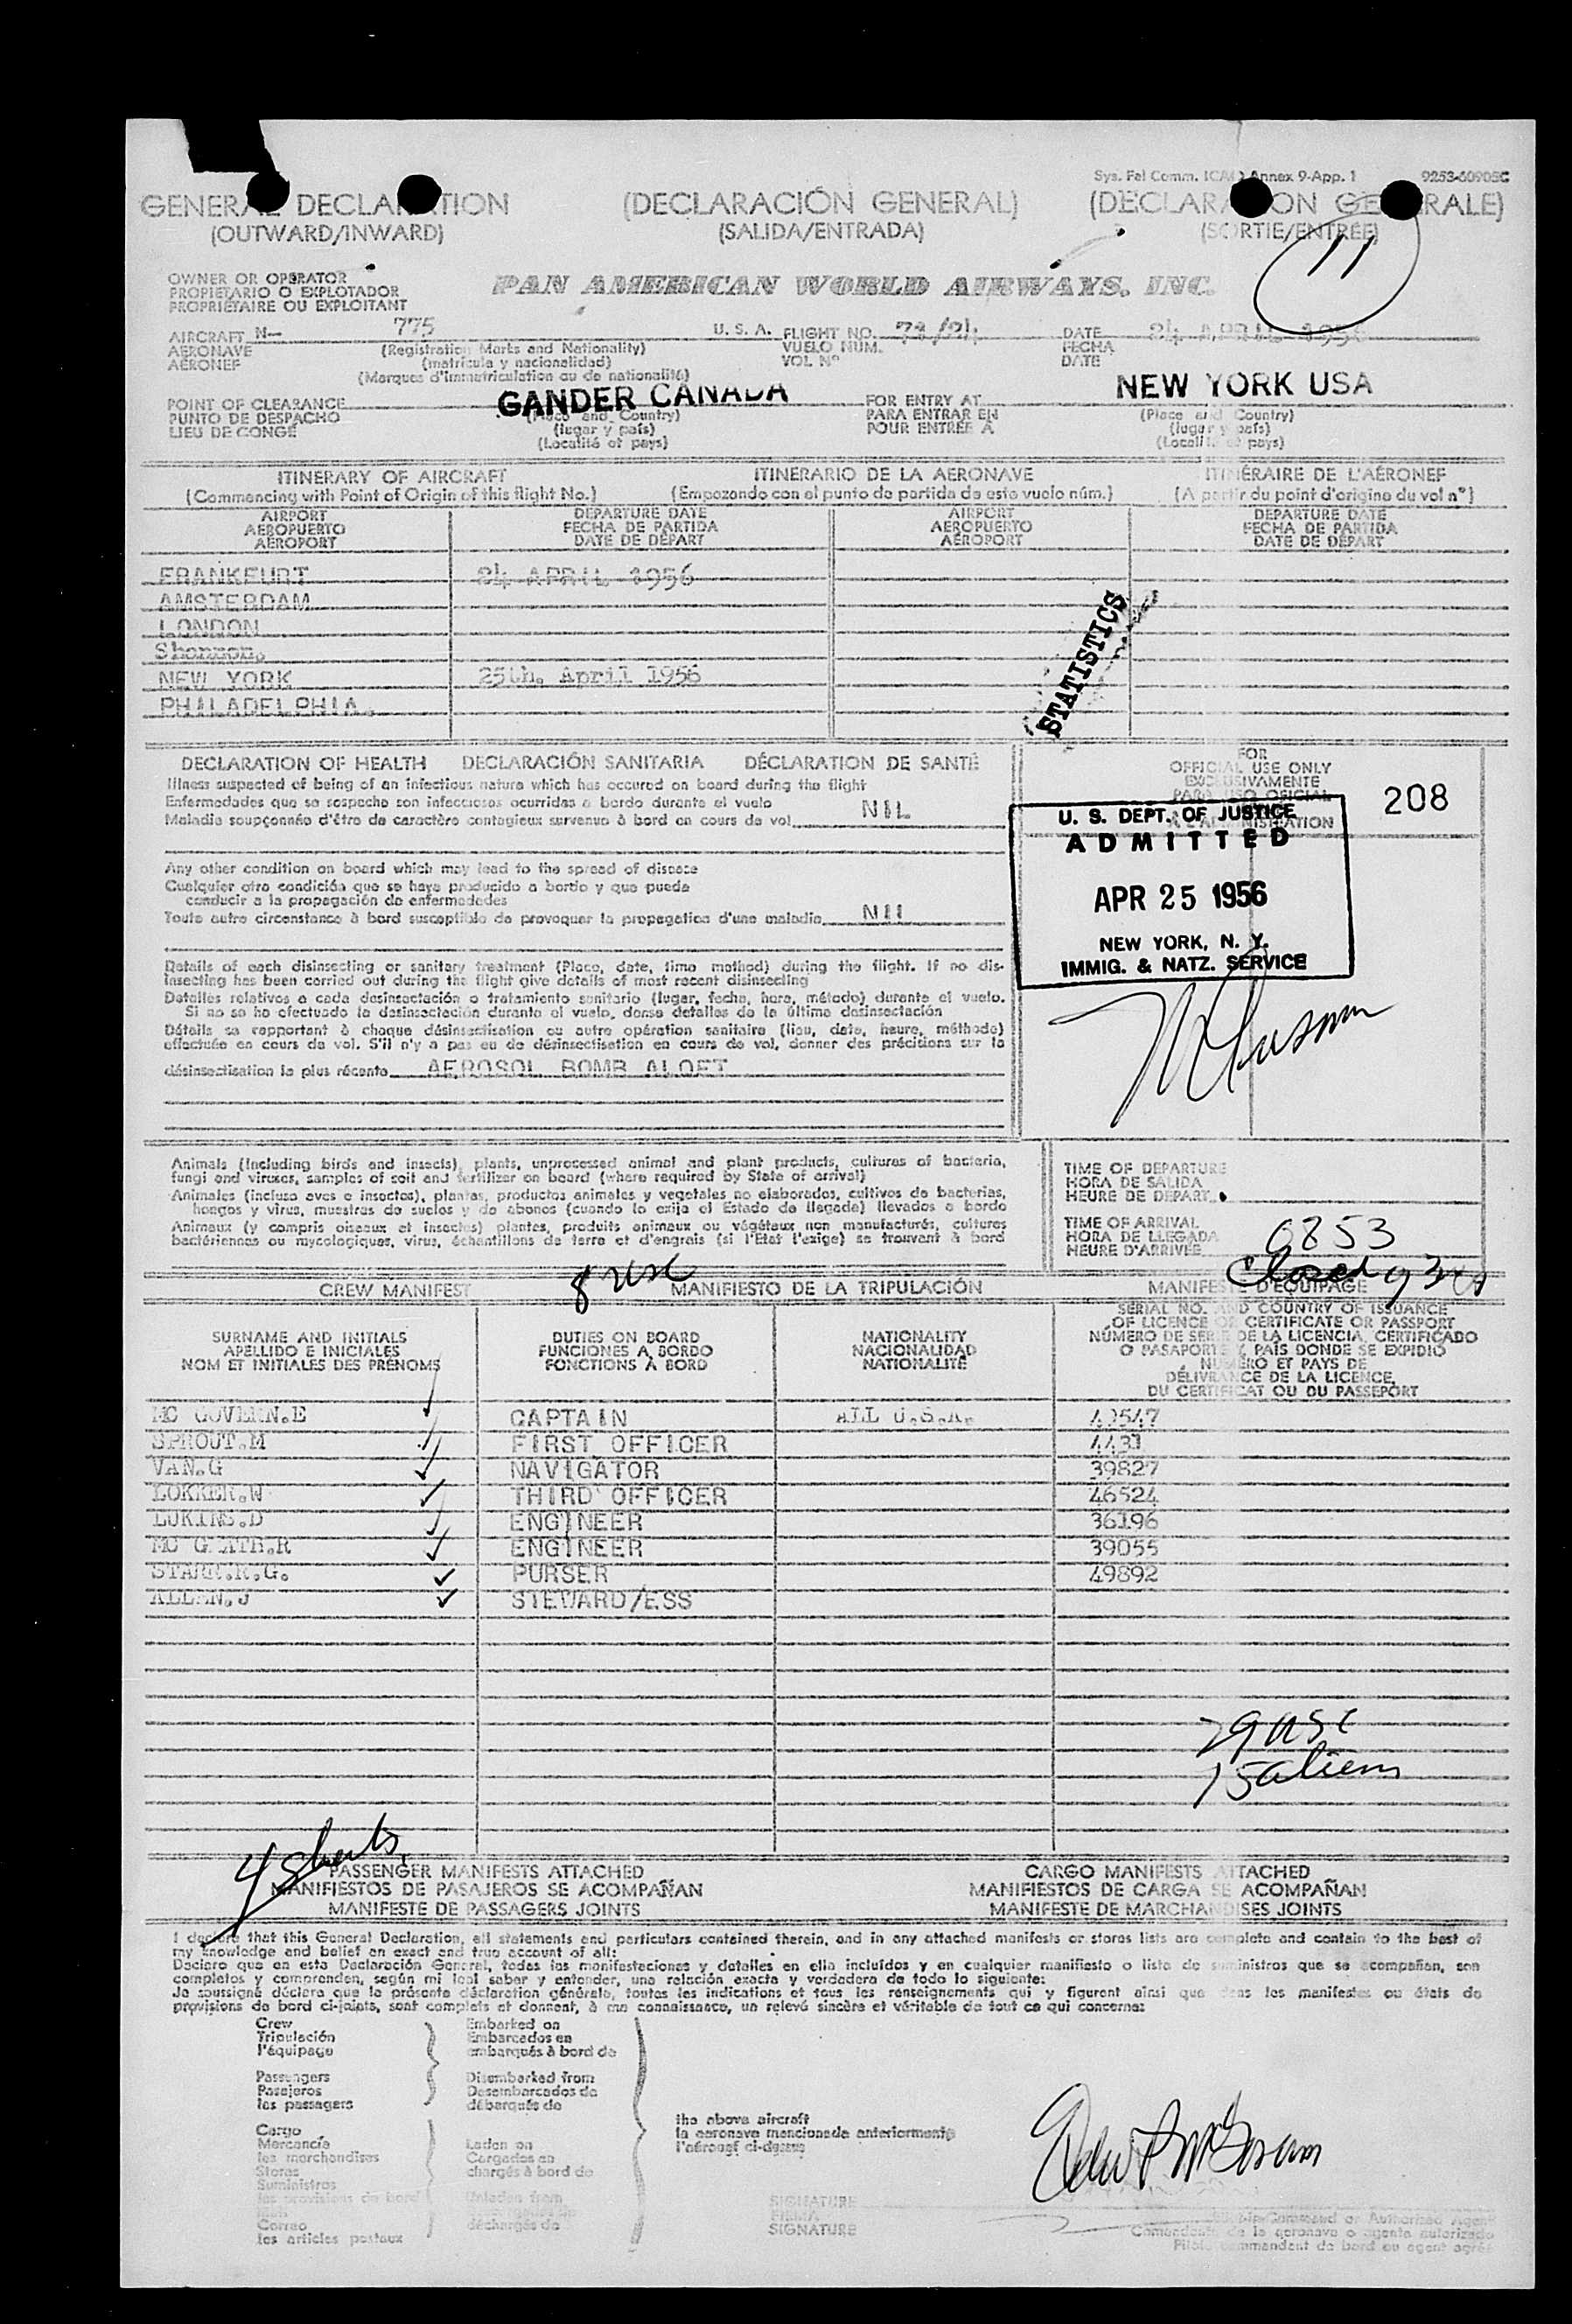 Sys. Fal Comm. ICAO Annex 9-App. 1 9253-60905C
GENERAL DECLARATION (DECLARACIÓN GENERAL) (DECLARATION GENERALE)
(OUTWARD/INWARD) (SALIDA/ENTRADA) (SORTIE/ENTRÉE)
11
OWNER OR OPERATOR
PROPIETARIO O EXPLOTADOR
PROPRIÉTAIRE OU EXPLOITANT
PAN AMERICAN WORLD AIRWAYS, INC.
AIRCRAFT N- 775 U. S. A. FLIGHT NO. 71/24 DATE 24 APRIL 1956
AERONAVE (Registration Marks and Nationality) VUELO NUM. FECHA
AÉRONEF (matrícula y nacionalidad) VOL Nº DATE
(Marques d'immatriculation ou de nationalité)
POINT OF CLEARANCE GANDER CANADA FOR ENTRY AT NEW YORK USA
PUNTO DE DESPACHO (Place and Country) PARA ENTRAR EN (Place and Country)
LIEU DE CONGÉ (lugar y país) POUR ENTRÉE A (lugar y país)
(Localité et pays) (Localité et pays)
ITINERARY OF AIRCRAFT ITINERARIO DE LA AERONAVE ITINÉRAIRE DE L'AÉRONEF
(Commencing with Point of Origin of this flight No.) (Empezando con el punto de partida de este vuelo núm.) (A partir du point d'origine du vol nº)
AIRPORT DEPARTURE DATE AIRPORT DEPARTURE DATE
AEROPUERTO FECHA DE PARTIDA AEROPUERTO FECHA DE PARTIDA
AÉROPORT DATE DE DÉPART AÉROPORT DATE DE DÉPART
FRANKFURT 24 APRIL 1956
AMSTERDAM
LONDON
Shannon.
NEW YORK 25th. April 1956
PHILADELPHIA.
STATISTICS
DECLARATION OF HEALTH DECLARACIÓN SANITARIA DÉCLARATION DE SANTÉ
Illness suspected of being of an infectious nature which has occured on board during the flight
Enfermedades que se sospecha son infecciosas ocurridas a bordo durante el vuelo
Maladie soupçonnée d'être de caractère contagieux survenue à bord en cours de vol NIL
Any other condition on board which may lead to the spread of disease
Cualquier otra condición que se haya producido a bordo y que pueda
conducir a la propagación de enfermedades
Toute autre circonstance à bord susceptible de provoquer la propagation d'une maladie NIL
Details of each disinsecting or sanitary treatment (Place, date, time method) during the flight. If no dis-
insecting has been carried out during the flight give details of most recent disinsecting
Detalles relativos a cada desinsectación o tratamiento sanitario (lugar, fecha, hora, método) durante el vuelo.
Si no se ha efectuado la desinsectación durante el vuelo, dense detalles de la última desinsectación
Détails se rapportant à chaque désinsectisation ou autre opération sanitaire (lieu, date, heure, méthode)
effectuée en cours de vol. S'il n'y a pas eu de désinsectisation en cours de vol, donner des précisions sur la
désinsectisation la plus récente AEROSOL BOMB ALOFT
FOR
OFFICIAL USE ONLY
EXCLUSIVAMENTE
PARA USO OFICIAL
208
U. S. DEPT. OF JUSTICE
ADMITTED
APR 25 1956
NEW YORK, N. Y.
IMMIG. & NATZ. SERVICE
Animals (Including birds and insects), plants, unprocessed animal and plant products, cultures of bacteria,
fungi and viruses, samples of soil and fertilizer on board (where required by State of arrival)
Animales (incluso aves e insectos), plantas, productos animales y vegetales no elaborados, cultivos de bacterias,
hongos y virus, muestras de suelos y de abonos (cuando lo exija el Estado de llegada) llevados a bordo
Animaux (y compris oiseaux et insectes) plantes, produits animaux ou végétaux non manufacturés, cultures
bactériennes ou mycologiques, virus, échantillons de terre et d'engrais (si l'Etat l'exige) se trouvant à bord
TIME OF DEPARTURE
HORA DE SALIDA
HEURE DE DÉPART
TIME OF ARRIVAL
HORA DE LLEGADA
HEURE D'ARRIVÉE 0853
Closed
8 usc
CREW MANIFEST MANIFIESTO DE LA TRIPULACIÓN MANIFESTE D'ÉQUIPAGE
SURNAME AND INITIALS
APELLIDO E INICIALES
NOM ET INITIALES DES PRÉNOMS
DUTIES ON BOARD
FUNCIONES A BORDO
FONCTIONS À BORD
NATIONALITY
NACIONALIDAD
NATIONALITÉ
SERIAL NO. AND COUNTRY OF ISSUANCE
OF LICENCE OR CERTIFICATE OR PASSPORT
NÚMERO DE SERIE DE LA LICENCIA, CERTIFICADO
O PASAPORTE Y PAÍS DONDE SE EXPIDIÓ
NUMÉRO ET PAYS DE
DÉLIVRANCE DE LA LICENCE,
DU CERTIFICAT OU DU PASSEPORT
MC GOVERN.E CAPTAIN ALL U.S.A. 49547
SPROUT.M FIRST OFFICER 4431
VAN.G NAVIGATOR 39827
LOKKER.W THIRD OFFICER 46524
LUKINS.D ENGINEER 36196
MC GRATH.R ENGINEER 39055
STARR.K.G. PURSER 49892
ALLEN.J STEWARD/ESS
29 usc
15 aliens
4 sheets
PASSENGER MANIFESTS ATTACHED CARGO MANIFESTS ATTACHED
MANIFIESTOS DE PASAJEROS SE ACOMPAÑAN MANIFIESTOS DE CARGA SE ACOMPAÑAN
MANIFESTE DE PASSAGERS JOINTS MANIFESTE DE MARCHANDISES JOINTS
I declare that this General Declaration, all statements and particulars contained therein, and in any attached manifests or stores lists are complete and contain to the best of
my knowledge and belief an exact and true account of all:
Declaro que en esta Declaración General, todas las manifestaciones y detalles en ella incluidos y en cualquier manifiesto o lista de suministros que se acompañan, son
completos y comprenden, según mi leal saber y entender, una relación exacta y verdadera de todo lo siguiente:
Je soussigné déclare que la présente déclaration générale, toutes les indications et tous les renseignements qui y figurent ainsi que dans les manifestes ou états de
provisions de bord ci-joints, sont complets et donnent, à ma connaissance, un relevé sincère et véritable de tout ce qui concerne:
Crew Embarked on
Tripulación Embarcados en
l'équipage embarqués à bord de
Passengers Disembarked from
Pasajeros Desembarcados de
les passagers débarqués de
Cargo
Mercancía Laden on
les marchandises Cargados en
Stores chargés à bord de
Suministros
les provisions de bord Unladen from
Correo
les articles postaux déchargés de
the above aircraft
la aeronave mencionada anteriormente
l'aéronef ci-dessus
SIGNATURE
FIRMA
SIGNATURE
Pilot in Command or Authorized Agent
Comandante de la aeronave o agente autorizado
Pilote commandant de bord ou agent agréé